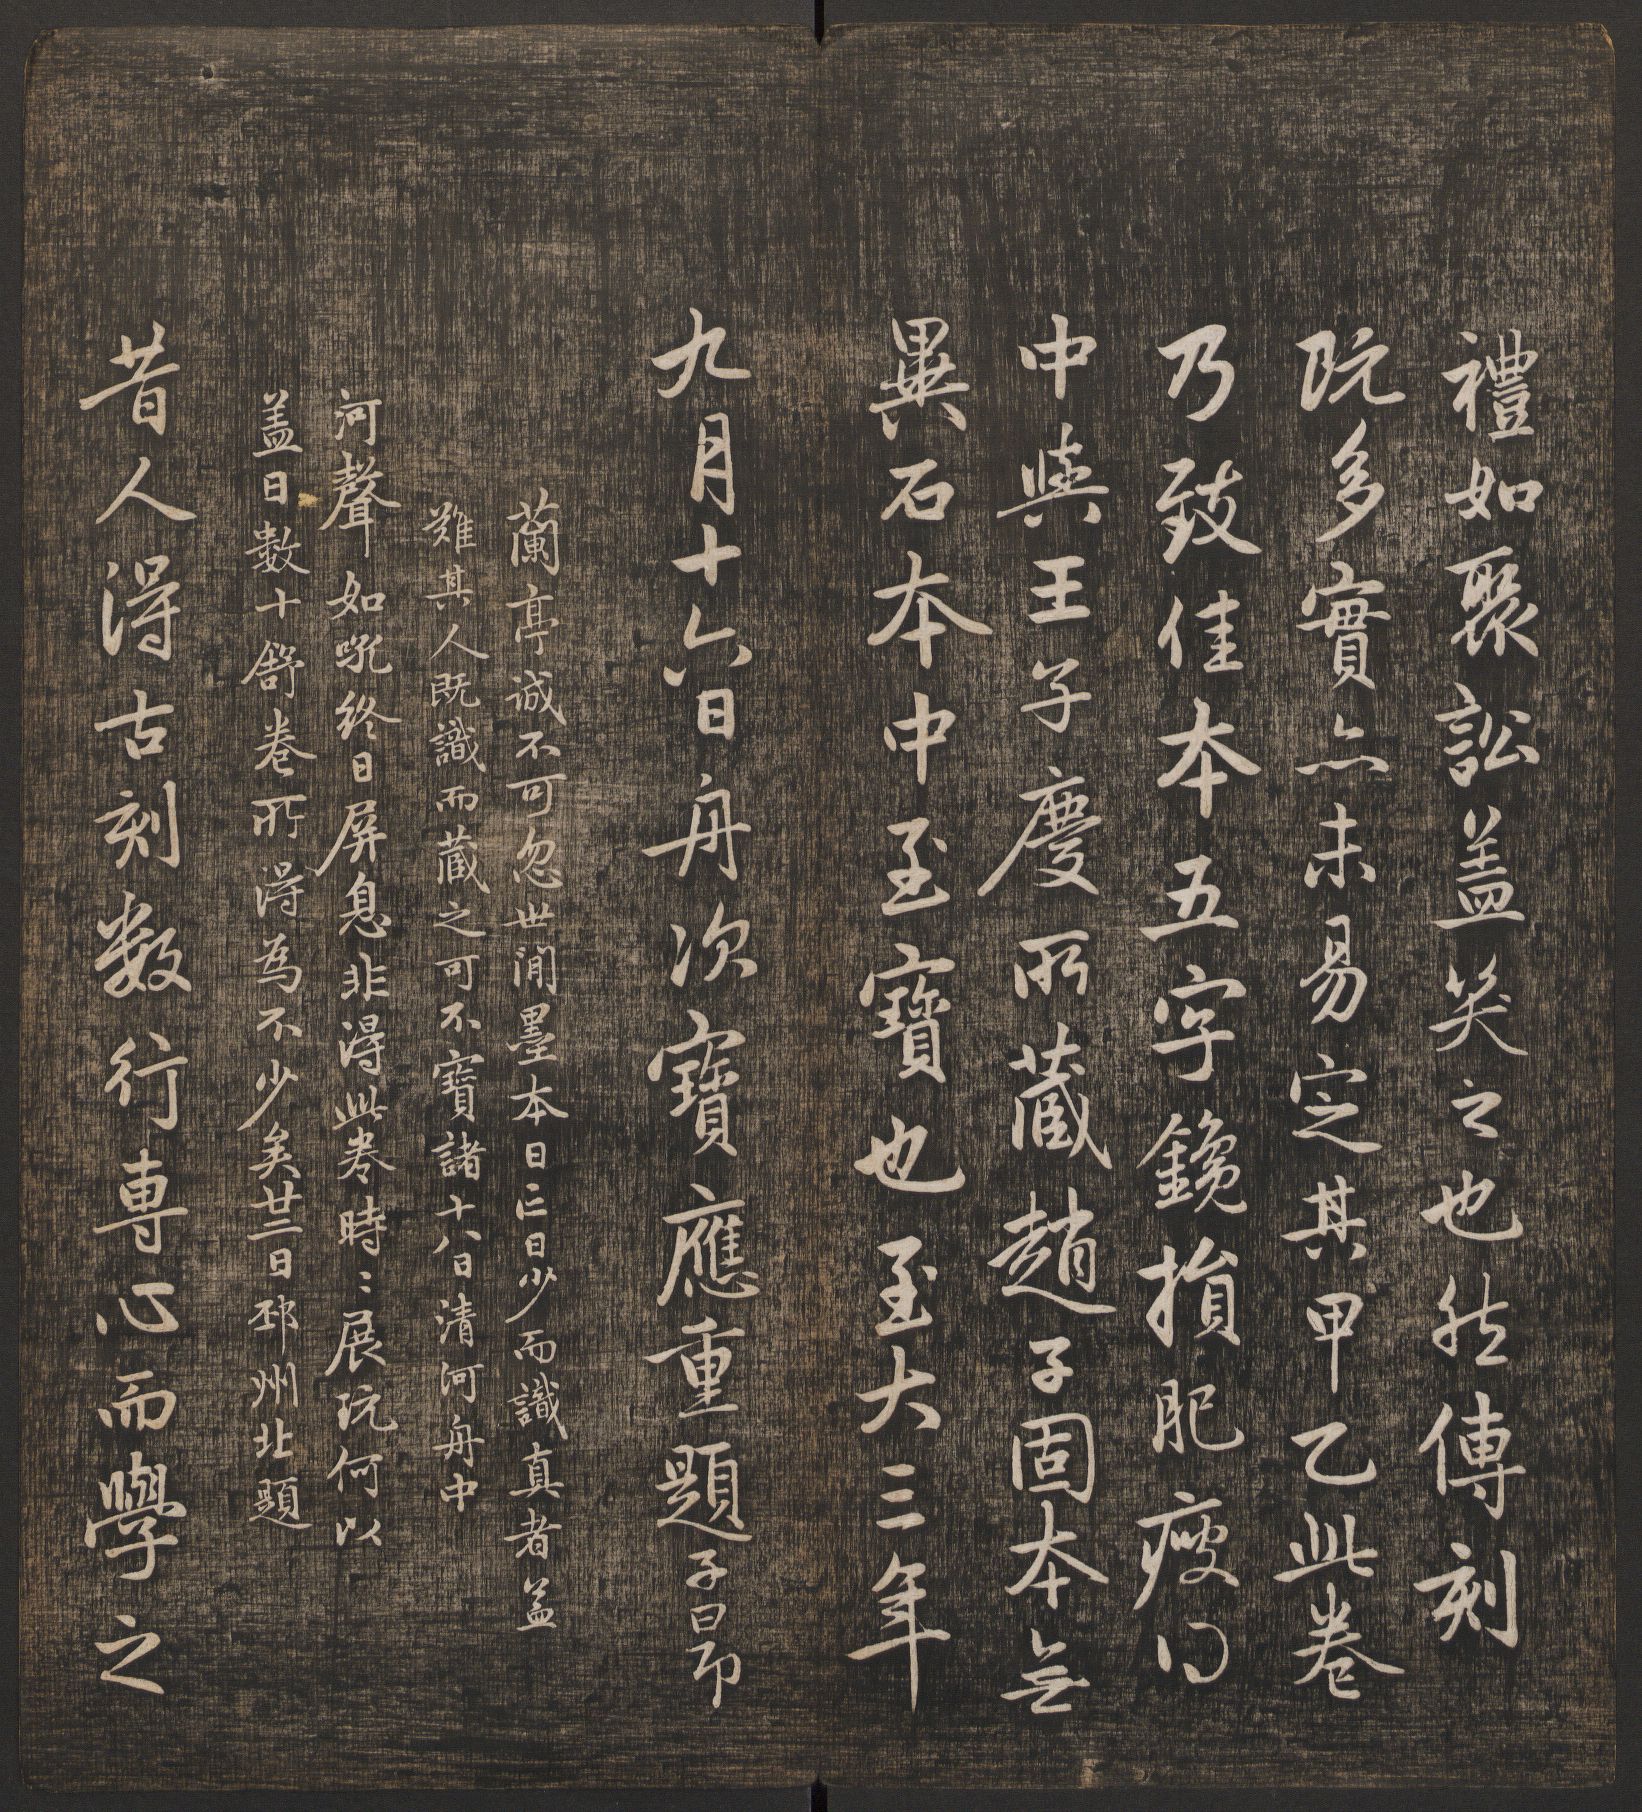 禮如聚訟盖笑之也然傳刻
既多實亦未易定其甲乙此卷
乃致佳本五字鑱損肥瘦得
中與王子慶所藏趙子固本無
異石本中至寶也至大三年
九月十六日舟次寶應重題子昂
蘭亭誠不可忽世間墨本日亡日少而識真者盖
難其人既識而藏之可不寶諸十八日清河舟中
河聲如吼終日屏息非得此卷時〻展玩何以
盖日數十舒卷所得為不少矣廿二日邳州北題
昔人得古刻數行專心而學之